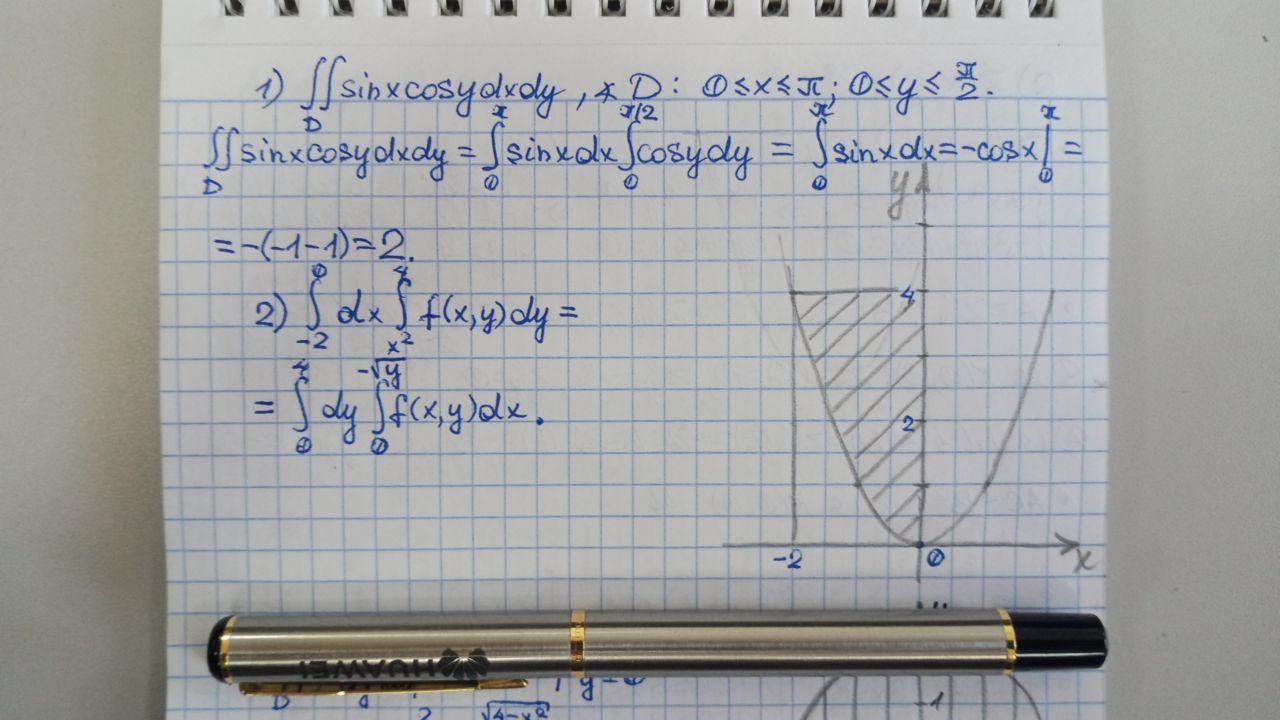 1) ∬_D sinxcosydxdy, D: 0≤x≤π; 0≤y≤π/2.
∬_D sinxcosydxdy = ∫_0^π sinxdx ∫_0^{π/2} cosydy = ∫_0^π sinxdx = -cosx|_0^π =
= -(-1-1) = 2.
2) ∫_{-2}^0 dx ∫_{x²}^4 f(x,y)dy =
= ∫_0^4 dy ∫_0^{-√y} f(x,y)dx.
y
4
2
-2 0 x
HUAWEI
D
2 √4-x²
-1